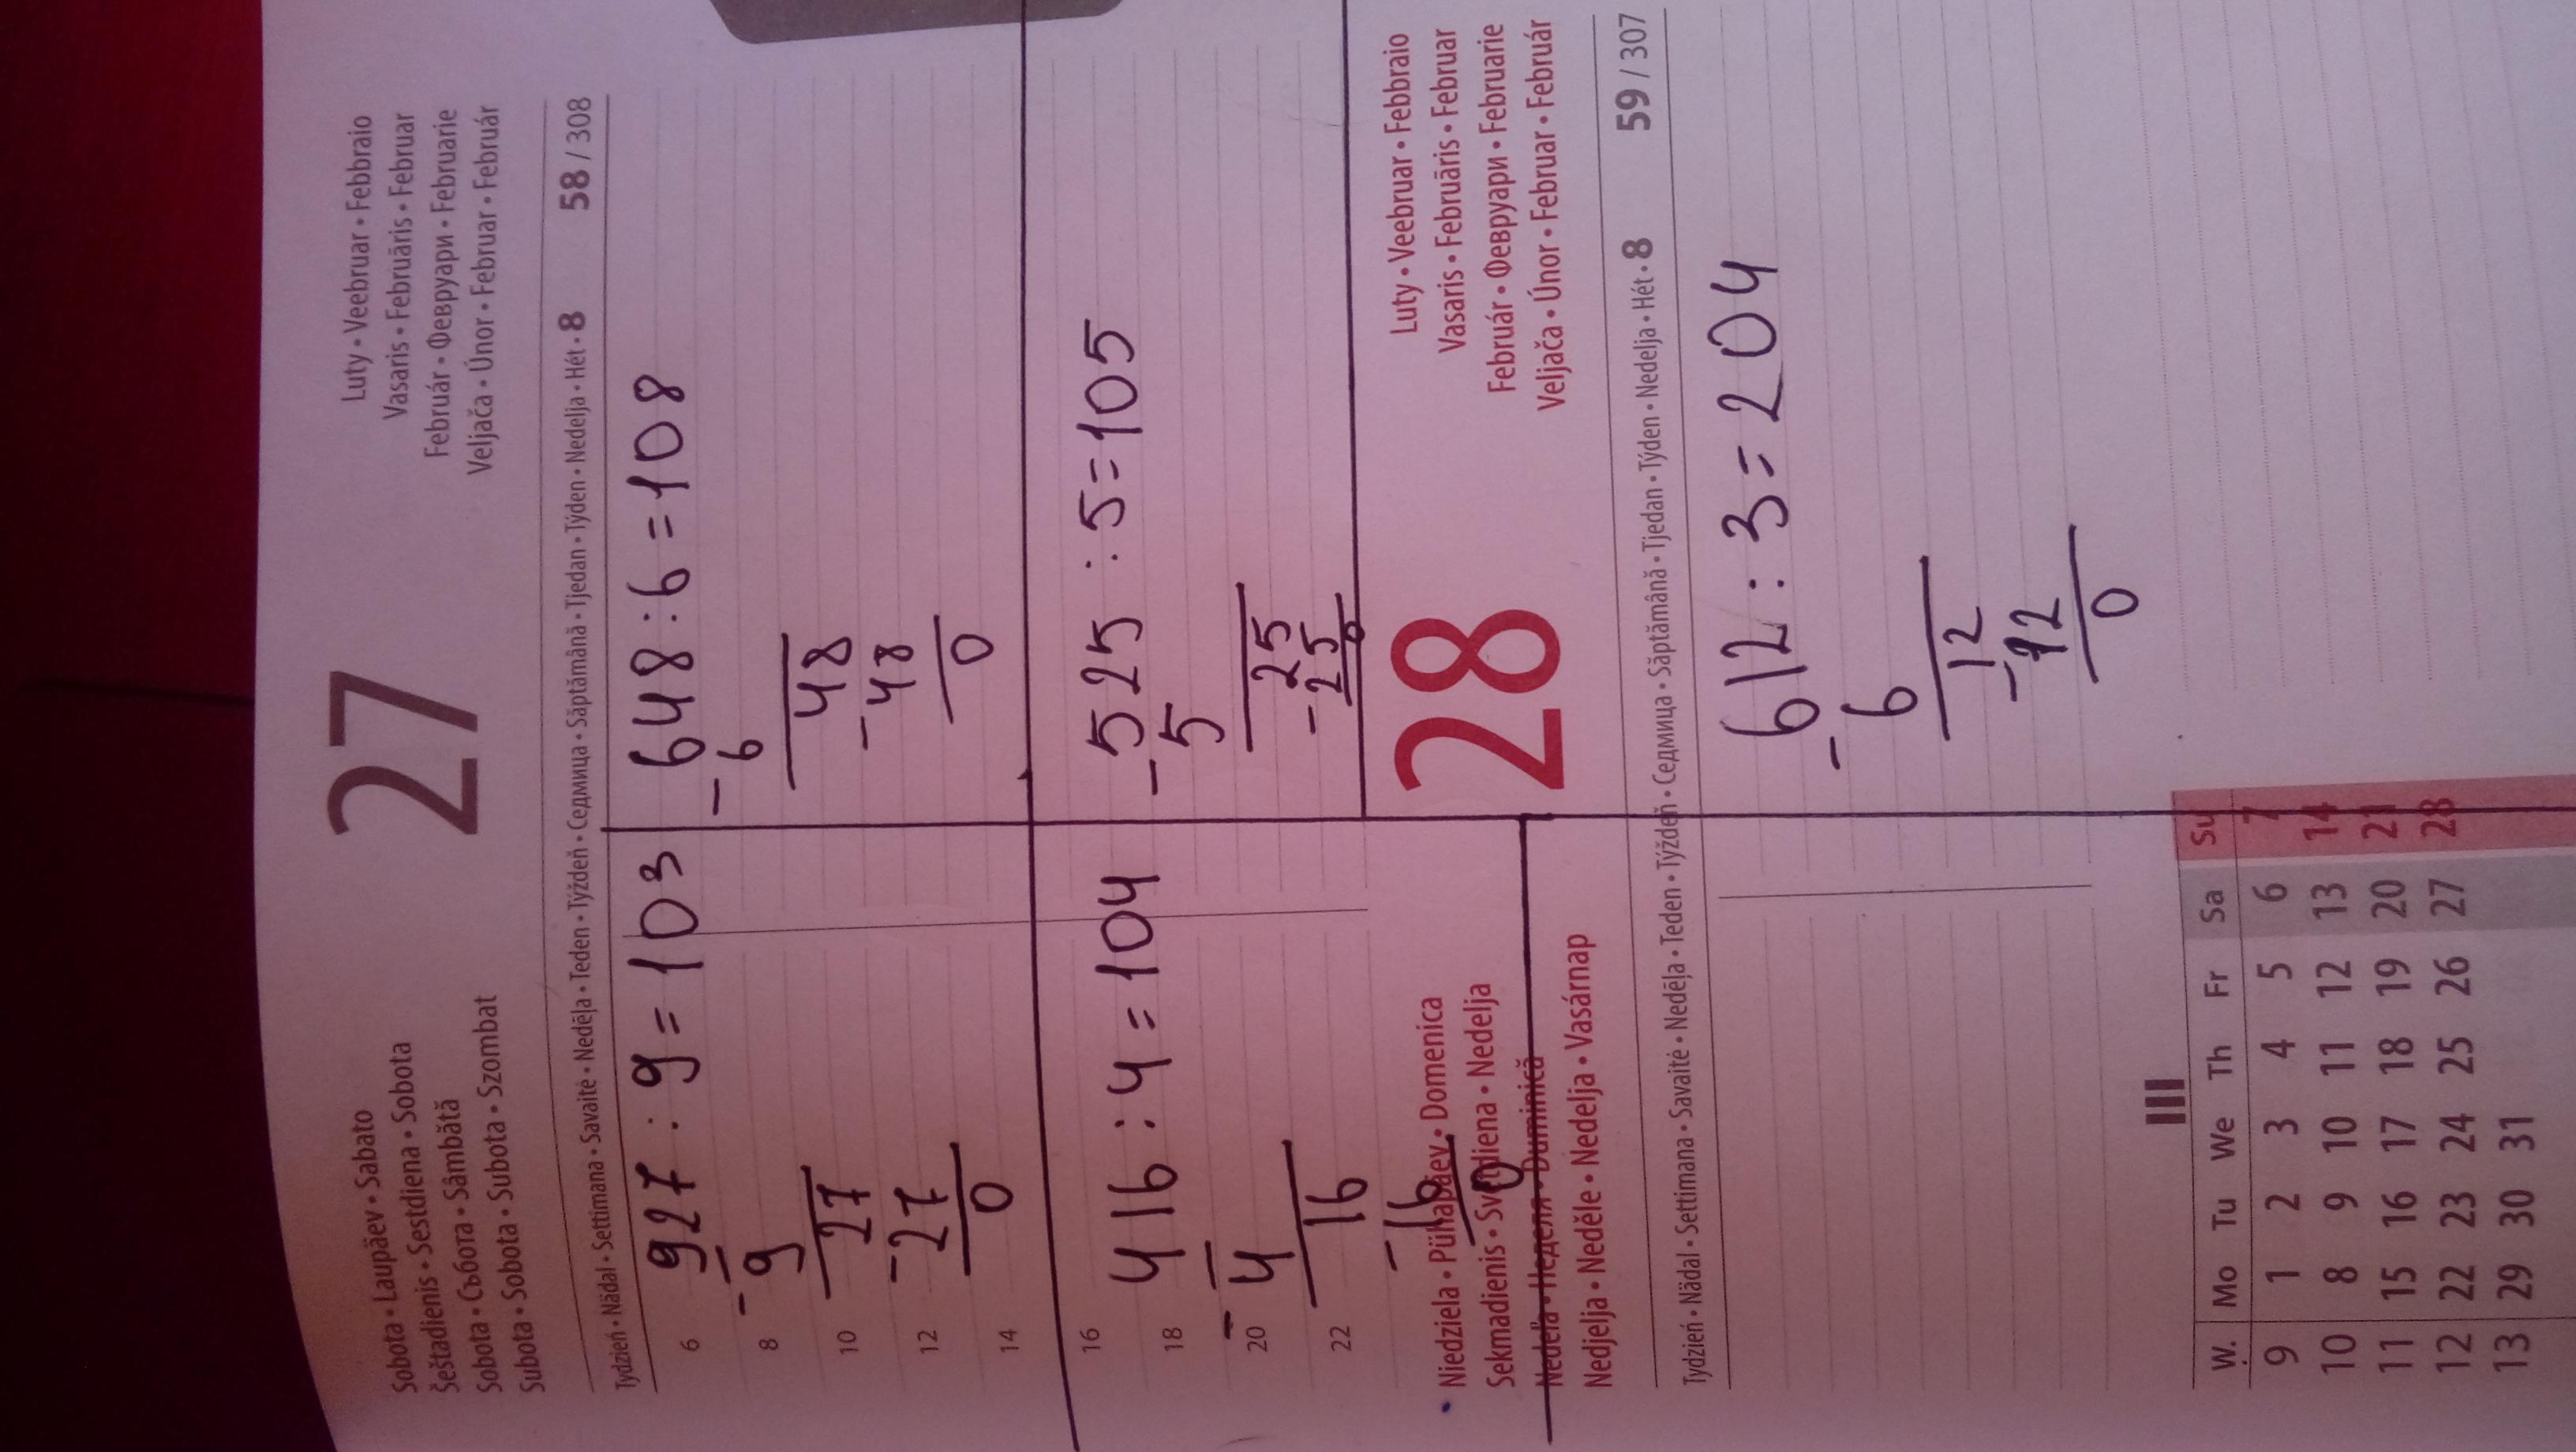 Sobota • Laupäev • Sabato
Šeštadienis • Sestdiena • Sobota
Sobota • Събота • Sâmbătă
Subota • Sobota • Subota • Szombat
27
Luty • Veebruar • Febbraio
Vasaris • Februāris • Februar
Február • Февруари • Februarie
Veljača • Únor • Februar • Február
Tydzień • Nädal • Settimana • Savaitė • Nedēļa • Teden • Týždeň • Седмица • Săptămână • Tjedan • Týden • Nedelja • Hét • 8 58 / 308
6
8
10
12
14
927 : 9 = 103
- 9
27
- 27
0
648 : 6 = 108
- 6
48
- 48
0
16
18
20
22
416 : 4 = 104
- 4
16
- 16
0
525 : 5 = 105
- 5
25
- 25
0
Niedziela • Pühapäev • Domenica
Sekmadienis • Svētdiena • Nedelja
Nedeľa • Неделя • Duminică
Nedjelja • Neděle • Nedelja • Vasárnap
28
Luty • Veebruar • Febbraio
Vasaris • Februāris • Februar
Február • Февруари • Februarie
Veljača • Únor • Februar • Február
Tydzień • Nädal • Settimana • Savaitė • Nedēļa • Teden • Týždeň • Седмица • Săptămână • Tjedan • Týden • Nedelja • Hét • 8 59 / 307
612 : 3 = 204
- 6
12
- 12
0
III
W. Mo Tu We Th Fr Sa Su
9 1 2 3 4 5 6 7
10 8 9 10 11 12 13 14
11 15 16 17 18 19 20 21
12 22 23 24 25 26 27 28
13 29 30 31